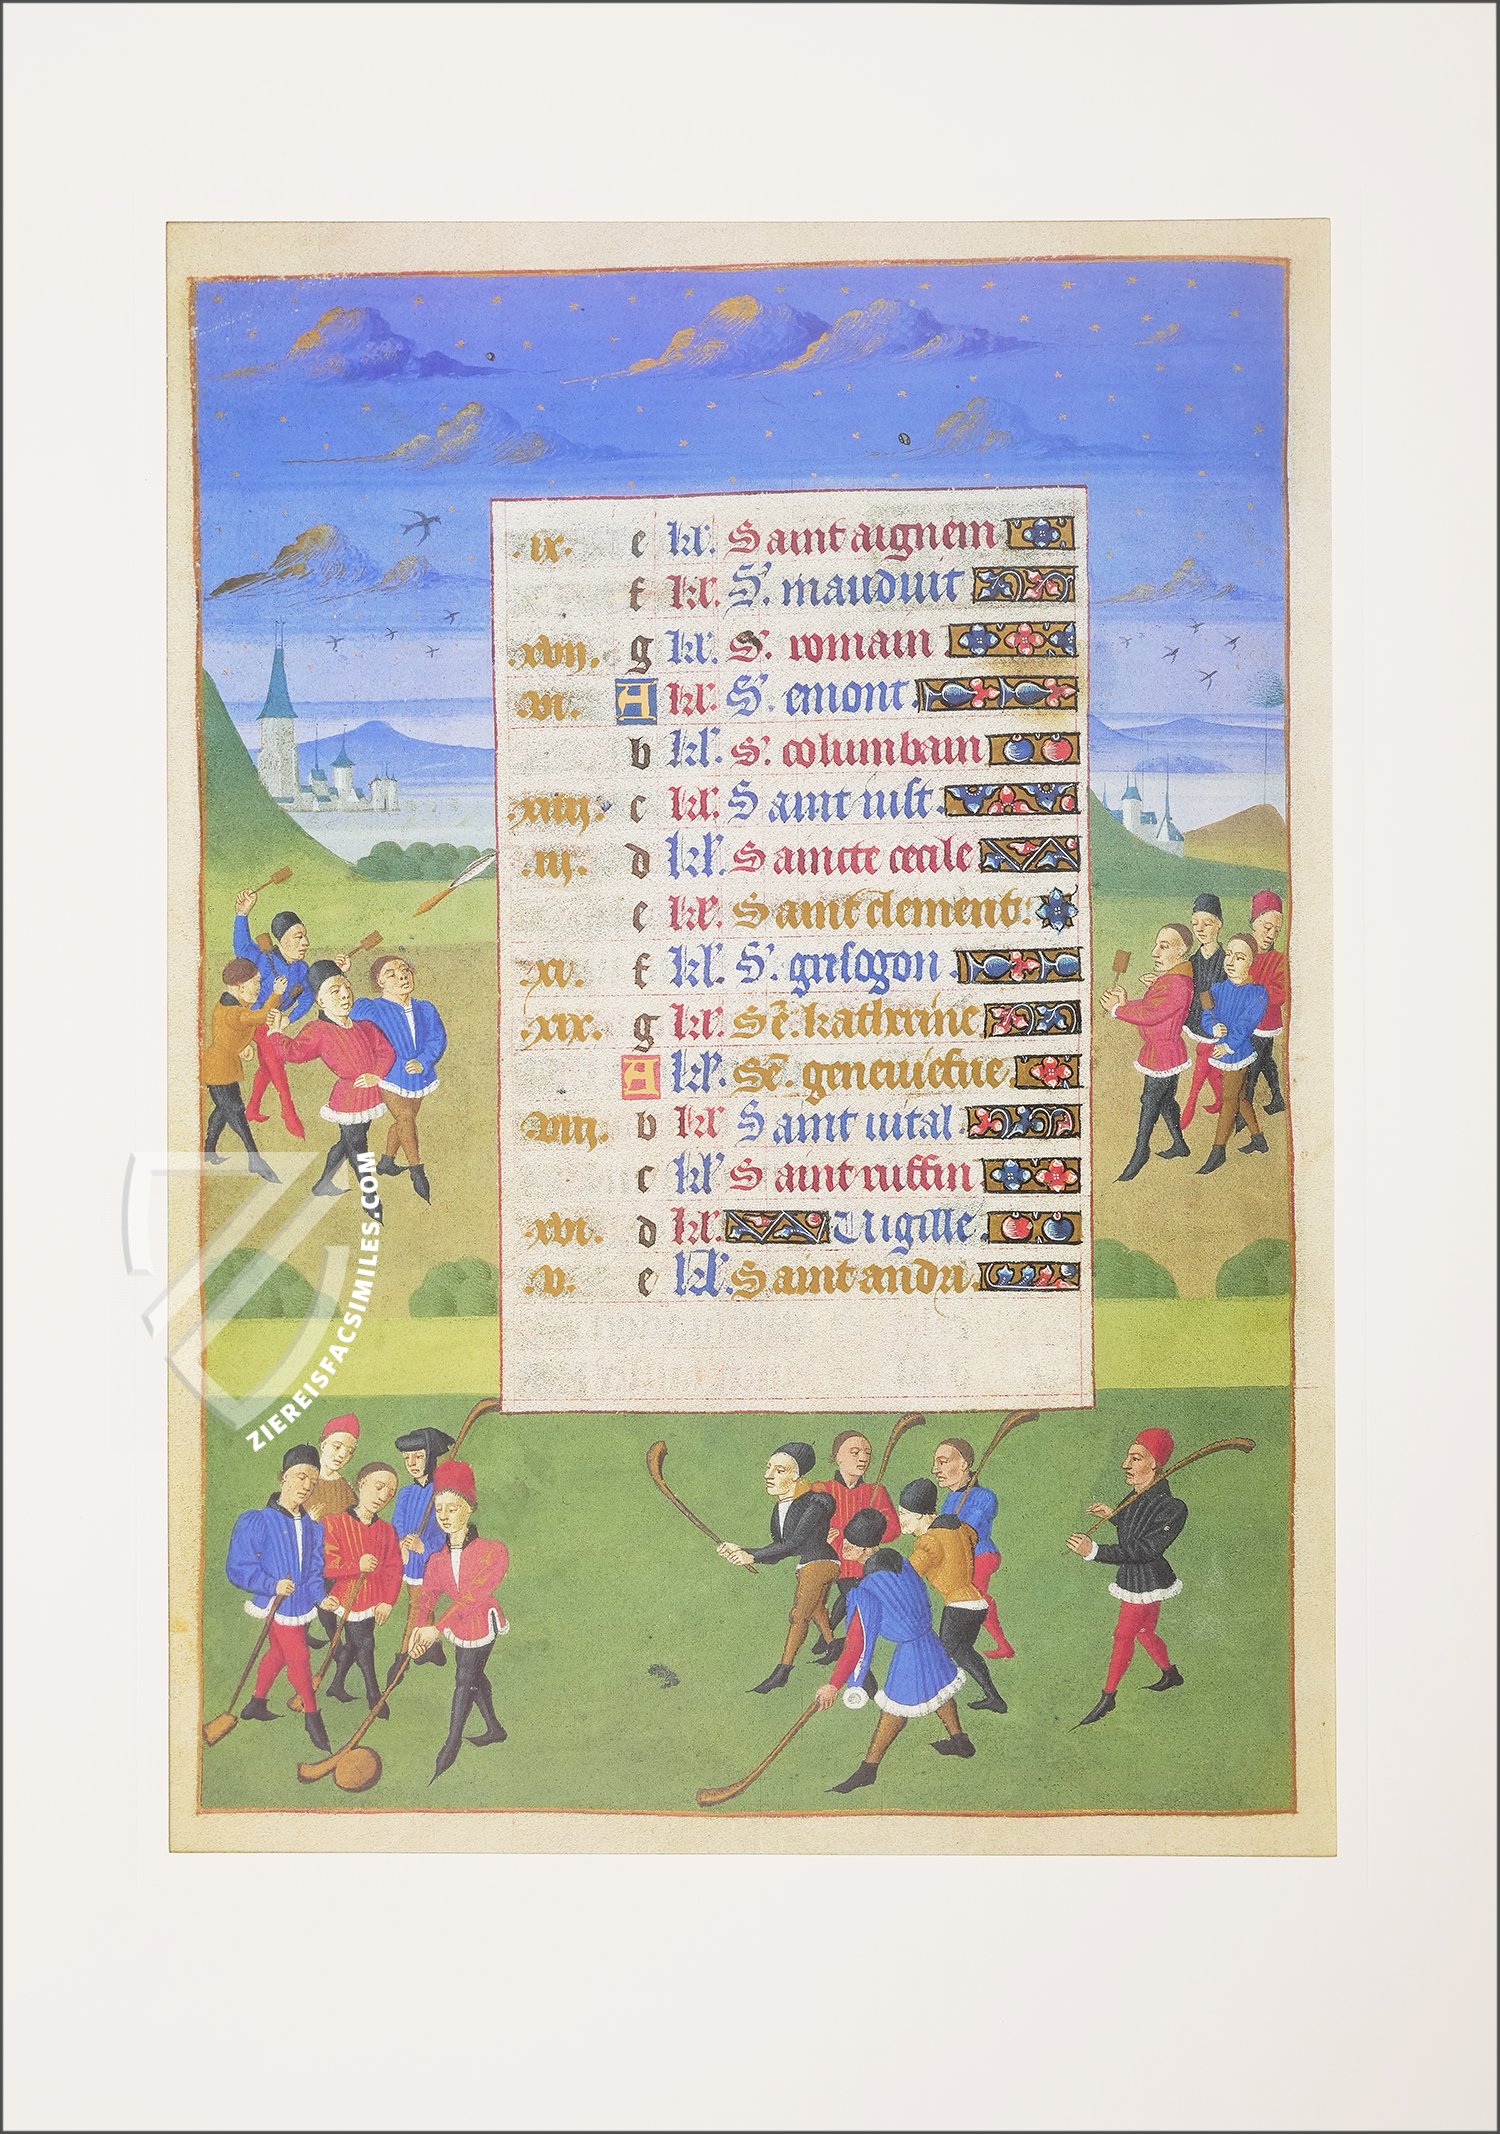 .ix. e kl'. Saint aignem
f kl'. S'. mauduit
.xvij. g kl'. S'. romain
.vi. A kl'. S'. emont.
b kl'. S'. columbain
.xiiij. c kl'. Saint iust.
.iij. d kl'. Saincte cecile
e kl'. Saint clement.
.xi. f kl'. S'. grisogon
.xix. g kl'. Sc̄. katherine
A kl'. Sc̄. geneuiefue.
.viij. b kl' Saint uital.
c kl' Saint ruffin
.xvi. d kl'. Uigille.
.v. e kl'. Saint andri.
ZIEREISFACSIMILES.COM